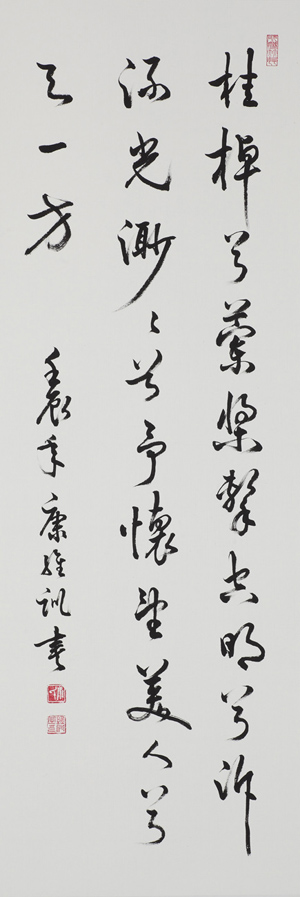 桂棹兮蘭槳擊空明兮泝
流光渺〻兮予懷望美人兮
天一方
壬辰年康維訓書